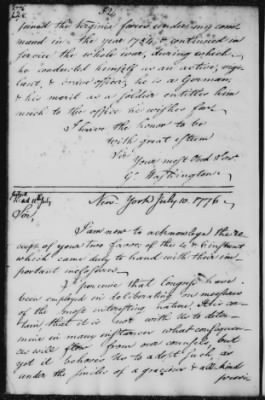 joined the Virginia forces under my com
mand in the year 1754, & continued in
service the whole war, during which
he conducted himself as an active, vigi
lant, & brave officer; he is a German,
& his merit as a soldier entitles him
much to the office he wishes for.
I have the honor to be
with great esteem
Sir Your most Obed Ser
Go Washington.
New York July 10. 1776
Sir,
I am now to acknowledge the re
ceipt of your two favors of the 4 & 6 instant
which came duly to hand with their im
portant inclosures.
I perceive that Congress have
been employed in deliberating on measures
of the most interesting nature. It is cer
tain that it is not with us to deter
mine in many instances what consequen
ces will flow from our councils, but
yet it behoves us to adopt such, as
under the smiles of a gracious & all kind